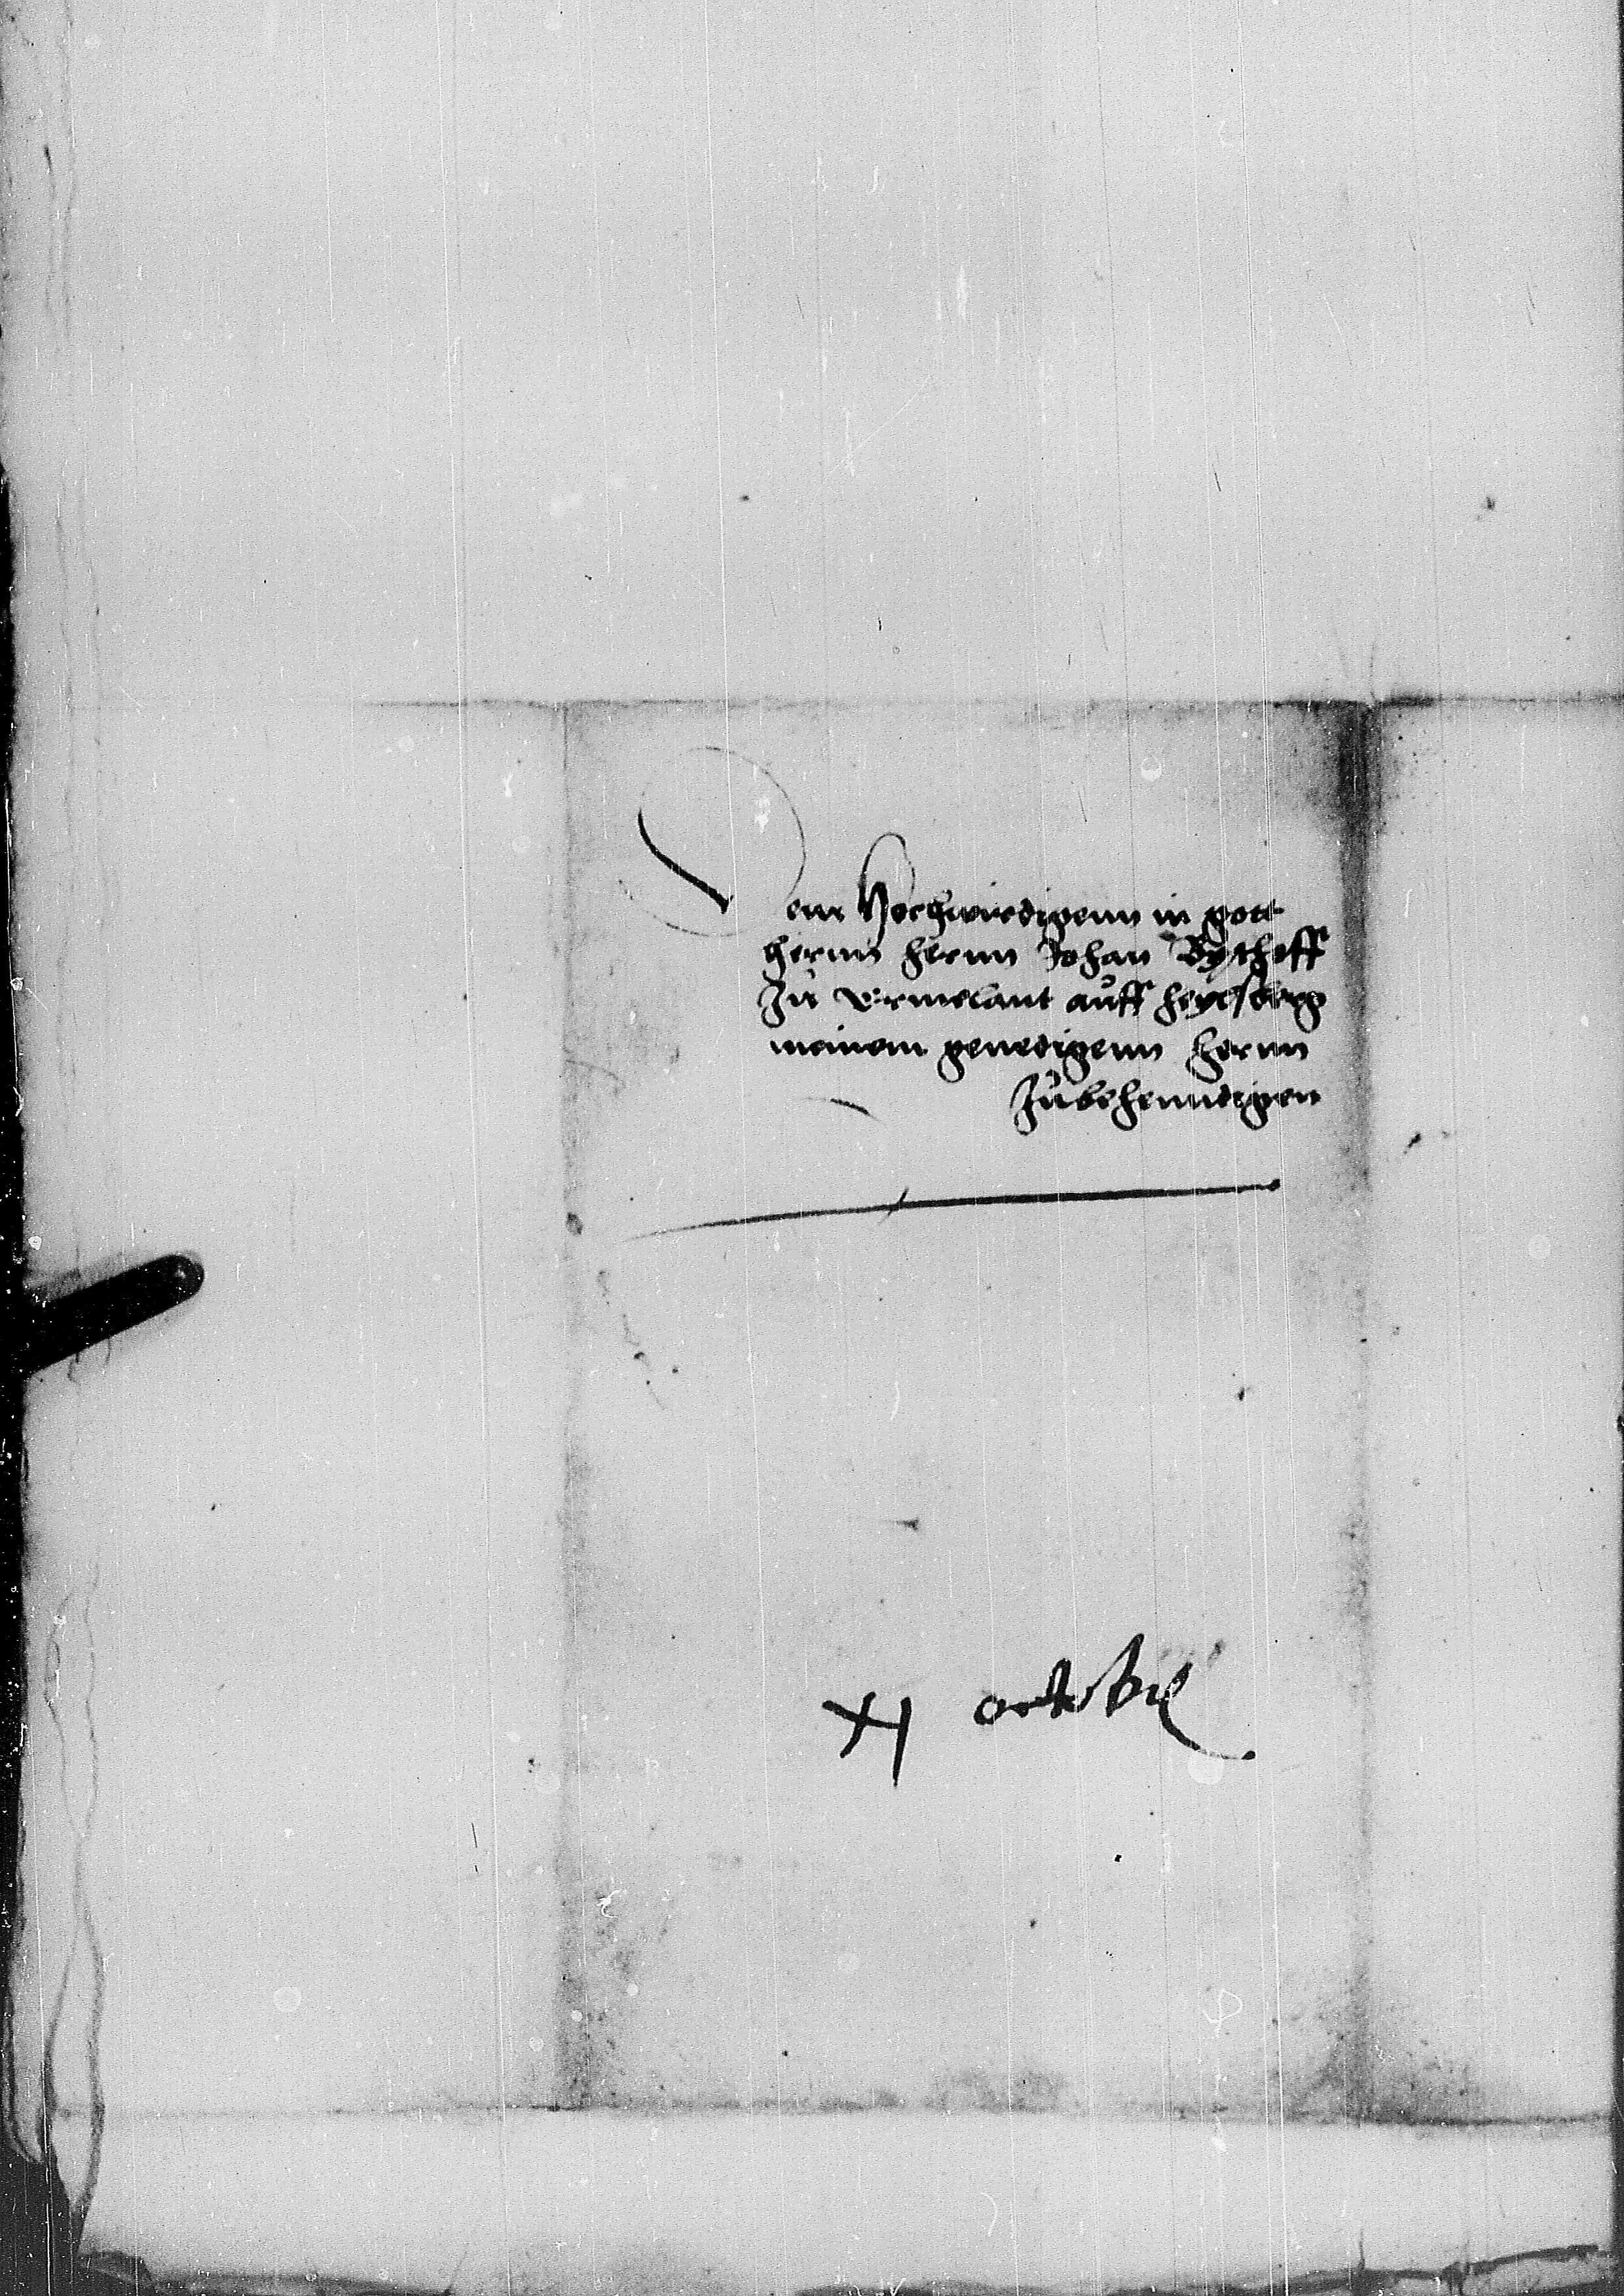 Dem Hochwirdigenn in gott
hernn hernn Johan Byschoff
Zu Ermelant auff heylsberg
meinem genedigenn hernn
Zubehenndigen
XJ octobr